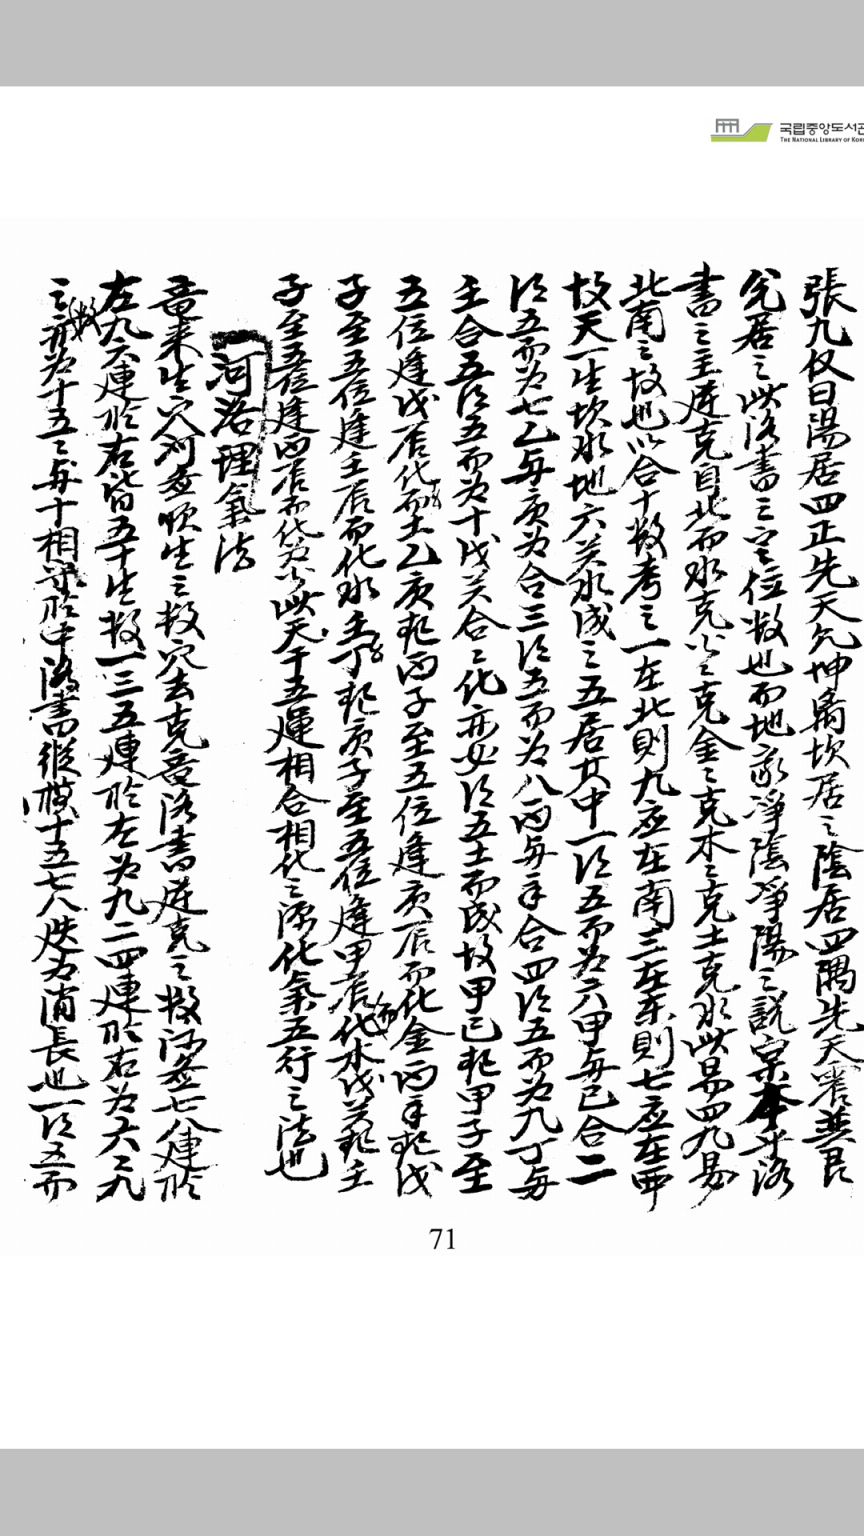 국립중앙도서관
THE NATIONAL LIBRARY OF KOR
張九仪曰陽居四正先天乾坤离坎居之陰居四隅先天震巽艮
兌居之此洛書之定位数也而地家净陰净陽之説宗本乎洛
書之主逆克自北而水克火火克金金克木木克土土克水此易四九易
北南之故也以合十数考之一在北則九应在南三在东則七应在西
故天一生坎水地六癸水成之五居其中一得五而为六甲与己合二
得五而为七乙与庚为合三得五而为八丙与辛合四得五而为九丁与
壬合五得五而为十戊癸合合化亦必得五土而成故甲己起甲子至
五位逢戊辰化而土乙庚起丙子至五位逢庚辰而化金丙辛起戊
子至五位逢壬辰而化水壬丁起庚子至五位逢甲辰而化木戊癸起壬
子至五位逢丙辰而化为火此天干五運相合相化之源化氣五行之法也
河洛理氣法
章来生穴河啚順生之数穴去克音洛書逆克之数河啚七八連於
左九六連於右皆五十生数一三五連於左为九二四連於右为六六九
之数而为十五五与十相守於中洛書縱横十五七八迭为消長也一得五而
71